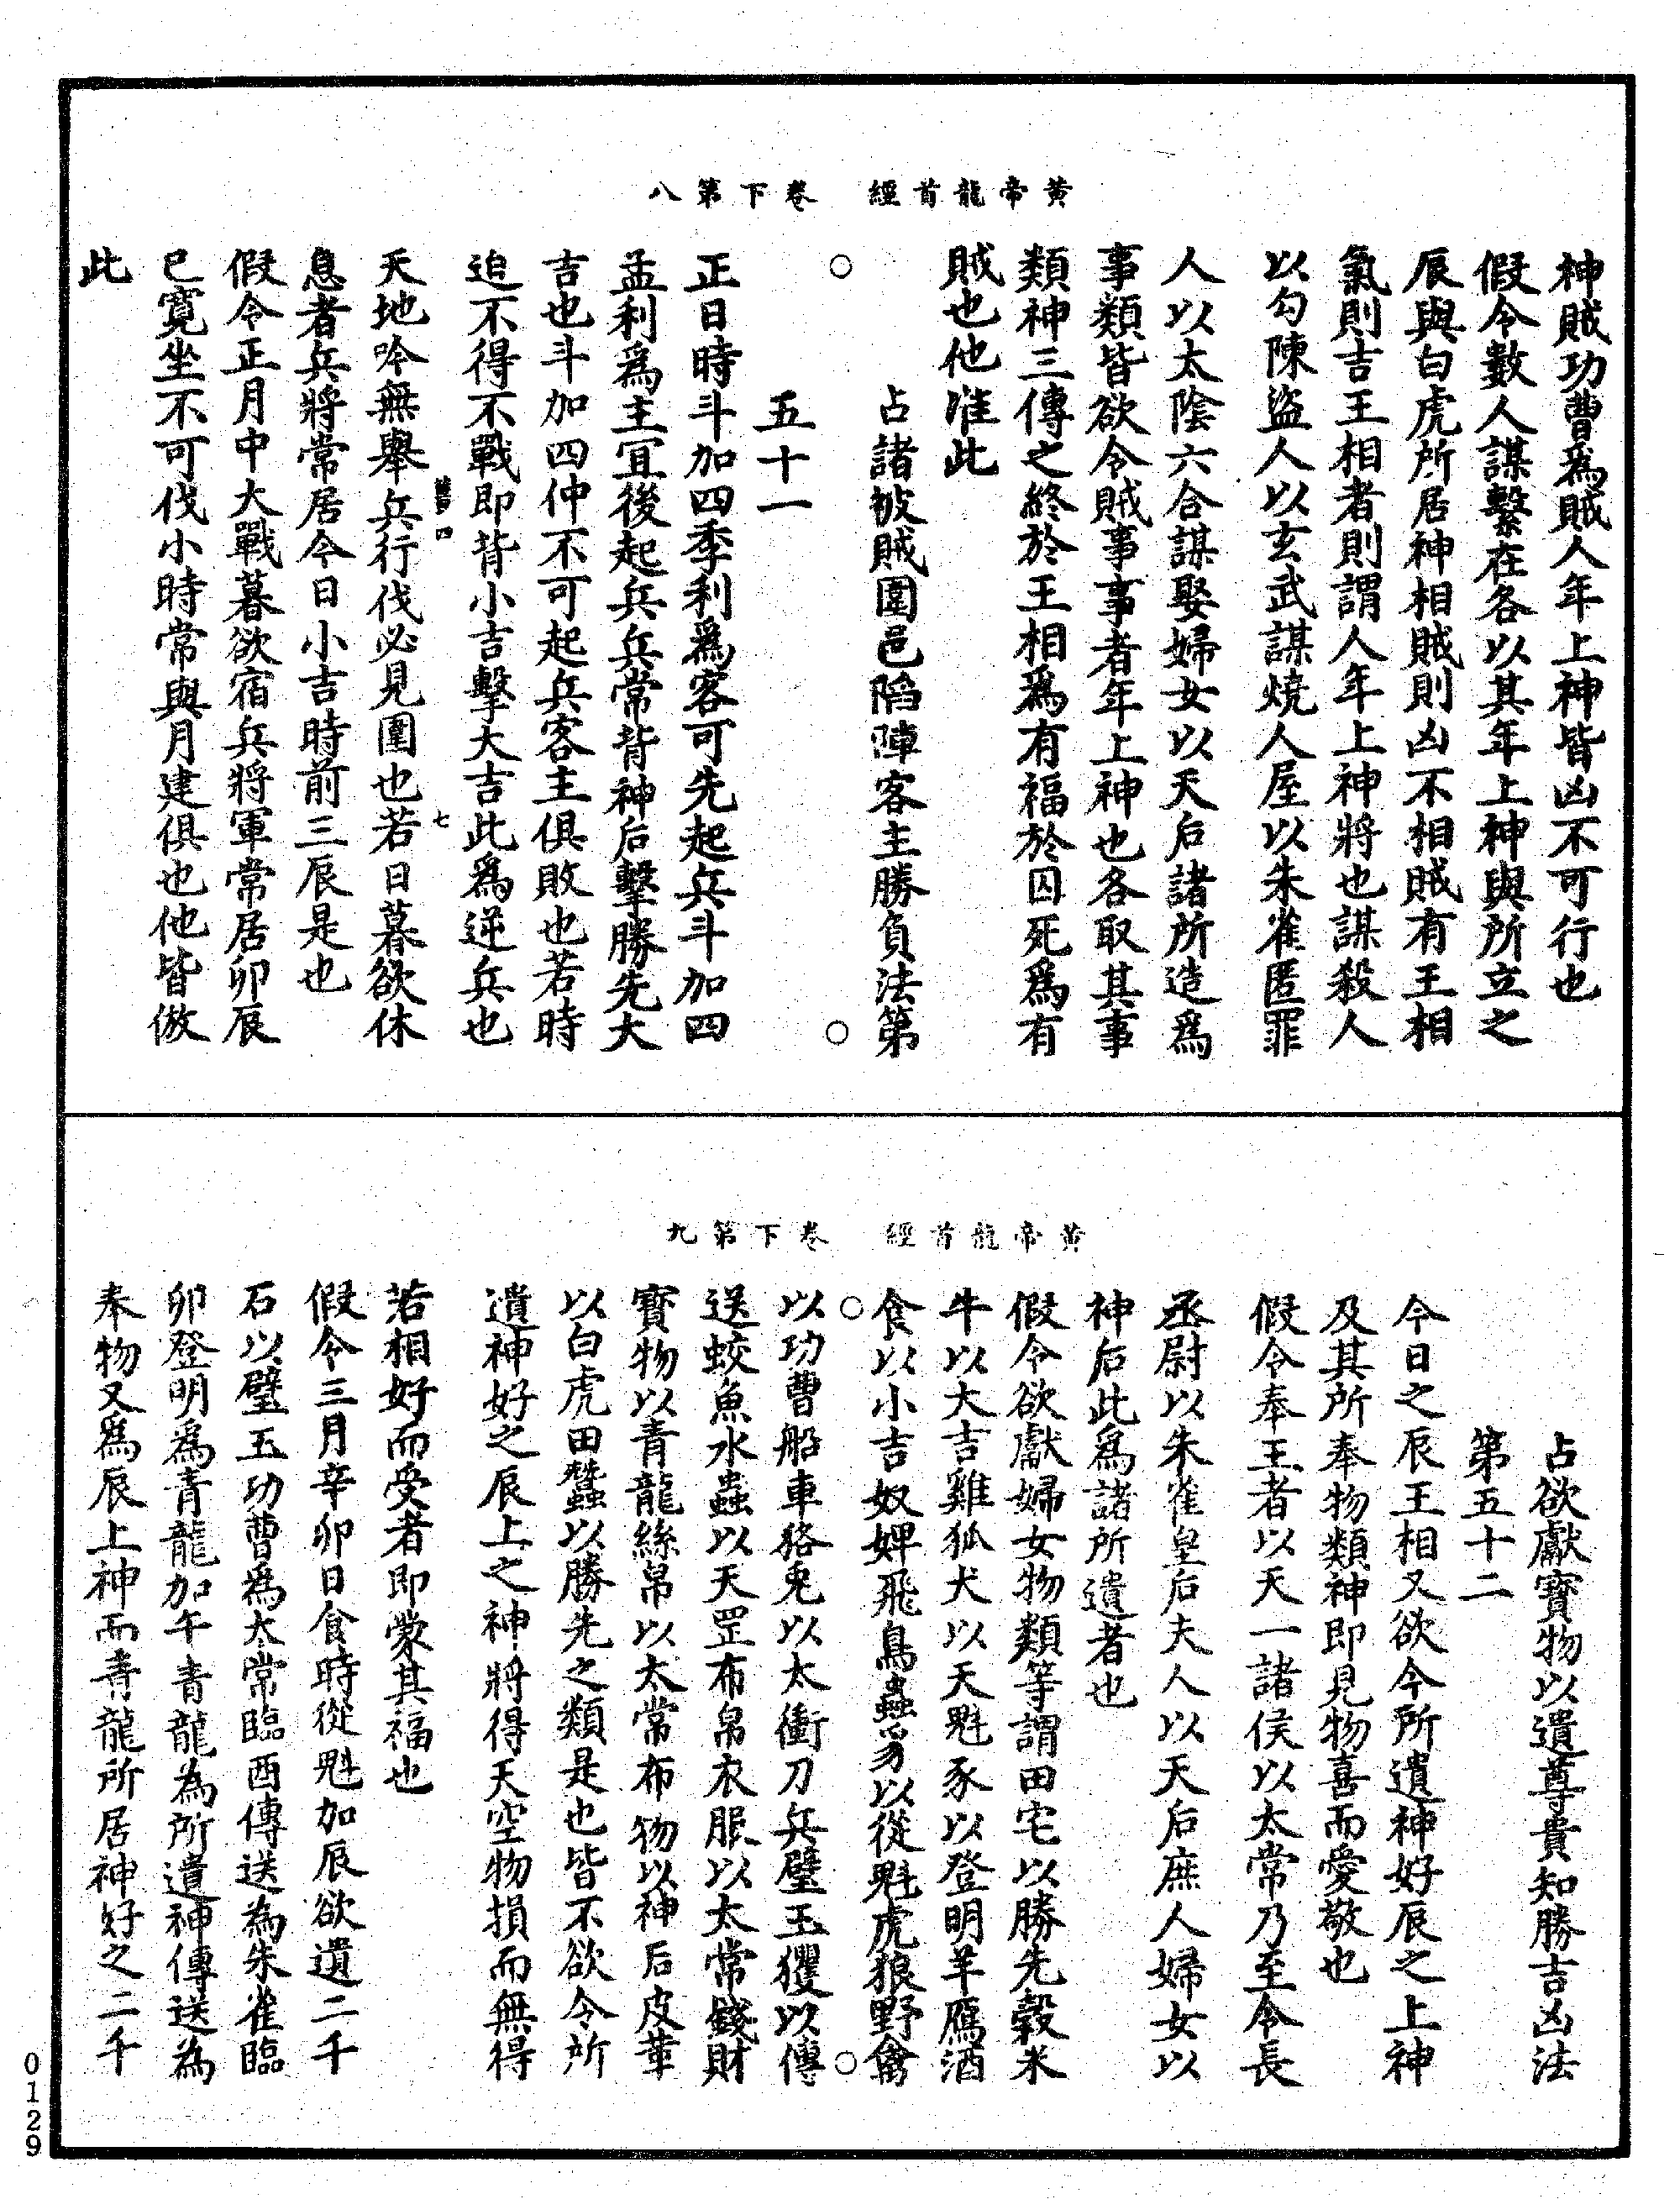 黃帝龍首經　卷下第八
神賊功曹爲賊人年上神皆凶不可行也
假令數人謀繫在各以其年上神與所立之
辰與白虎所居神相賊則凶不相賊有王相
氣則吉王相者則謂人年上神將也謀殺人
以勾陳盜人以玄武謀燒人屋以朱雀匿罪
人以太陰六合謀娶婦女以天后諸所造爲
事類皆欲令賊事事者年上神也各取其事
類神三傳之終於王相爲有福於囚死爲有
賊也他准此
占諸被賊圍邑陷陣客主勝負法第
五十一
正日時斗加四季利爲客可先起兵斗加四
孟利爲主宜後起兵兵常背神后擊勝先大
吉也斗加四仲不可起兵客主俱敗也若時
迫不得不戰即背小吉擊大吉此爲逆兵也
天地吟無舉兵行伐必見圍也若日暮欲休
息者兵將常居今日小吉時前三辰是也
假令正月中大戰暮欲宿兵將軍常居卯辰
巳寬坐不可伐小時常與月建俱也他皆倣
此
七
黃帝龍首經　卷下第九
占欲獻寶物以遺尊貴知勝吉凶法
第五十二
今日之辰王相又欲令所遺神好辰之上神
及其所奉物類神即見物喜而愛敬也
假令奉王者以天一諸侯以太常乃至令長
丞尉以朱雀皇后夫人以天后庶人婦女以
神后此爲諸所遺者也
假令欲獻婦女物類等謂田宅以勝先穀米
牛以大吉雞狐犬以天魁豕以登明羊鴈酒
食以小吉奴婢飛鳥蟲豸以從魁虎狼野禽
以功曹船車狢兎以太衝刀兵璧玉玃以傳
送蛟魚水蟲以天罡布帛衣服以太常錢財
寶物以青龍絲帛以太常布物以神后皮革
以白虎田蠶以勝先之類是也皆不欲令所
遺神好之辰上之神將得天空物損而無得
若相好而受者即蒙其福也
假令三月辛卯日食時從魁加辰欲遺二千
石以璧玉功曹爲太常臨酉傳送為朱雀臨
卯登明爲青龍加午青龍為所遺神傳送為
奉物又爲辰上神而青龍所居神好之二千
0129